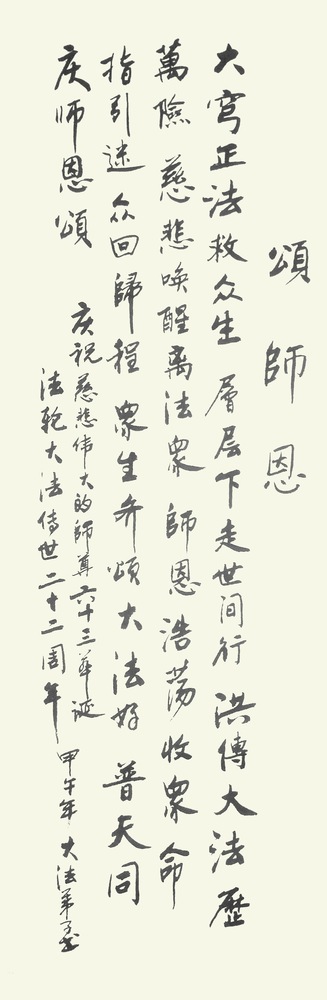 頌師恩
大穹正法救众生 層层下走世间行 洪傳大法歷
萬險 慈悲唤醒离法衆 師恩浩荡收衆命
指引迷众回歸程 衆生齐頌大法好 普天同
庆师恩頌
庆祝慈悲伟大的師尊六十三華诞
法轮大法传世二十二周年 甲午年 大法弟子